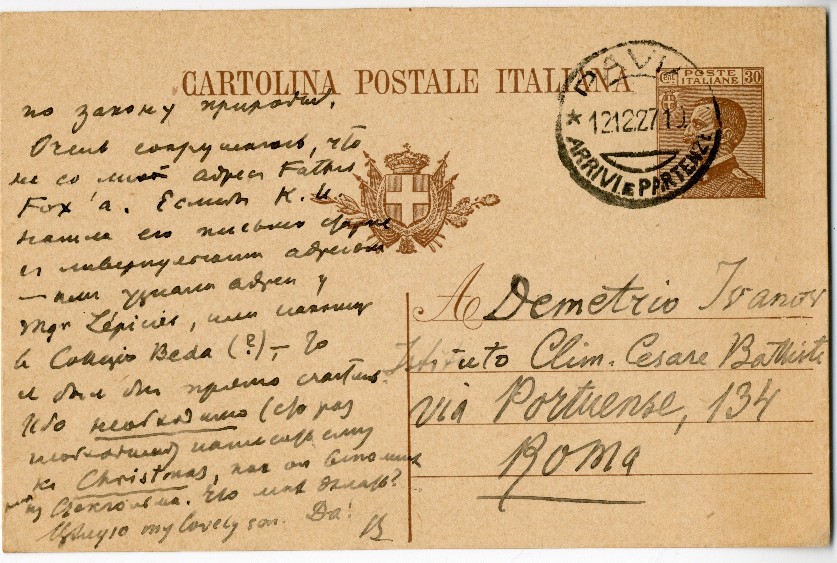 CARTOLINA POSTALE ITALIANA
POSTE
ITALIANE 30
PAVIA
* 12 12 27 1
ARRIVI E PARTENZE
по закону природы.
Очень сокрушаюсь, что
не со мной адреса Father
Fox'a. Если К. И.
нашла его письмо
с ливерпульским адресом
— или узнала адрес у
Mgr Lépicier, или
в Collegio Beda (?), — то
я был бы прямо счастлив.
Ибо необходимо (сто раз
необходимо) написать ему
к Christmas,
Что мне делать?
Целую my lovely son. Да!
В
A Demetrio Ivanov
Istituto Clim. Cesare Battisti
via Portuense, 134
Roma